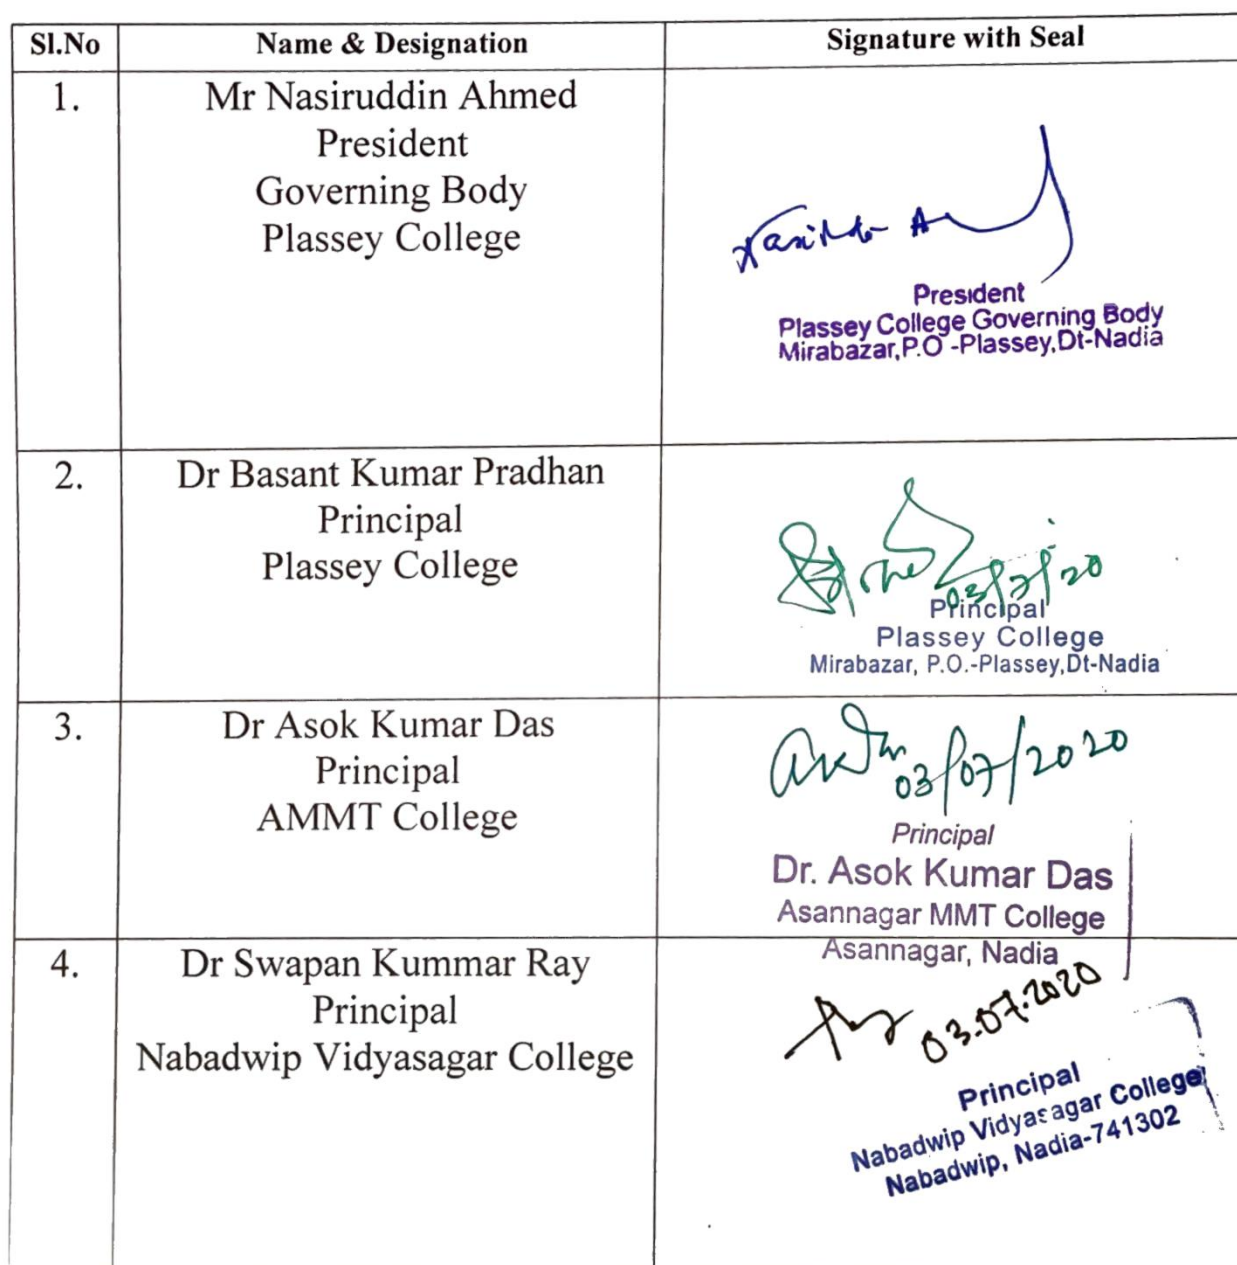 Sl.No Name & Designation Signature with Seal
1. Mr Nasiruddin Ahmed
President
Governing Body
Plassey College
President
Plassey College Governing Body
Mirabazar,P.O -Plassey,Dt-Nadia
2. Dr Basant Kumar Pradhan
Principal
Plassey College
03/7/20
Principal
Plassey College
Mirabazar, P.O.-Plassey,Dt-Nadia
3. Dr Asok Kumar Das
Principal
AMMT College
03/07/2020
Principal
Dr. Asok Kumar Das
Asannagar MMT College
Asannagar, Nadia
4. Dr Swapan Kummar Ray
Principal
Nabadwip Vidyasagar College
03.07.2020
Principal
Nabadwip Vidyasagar College
Nabadwip, Nadia-741302